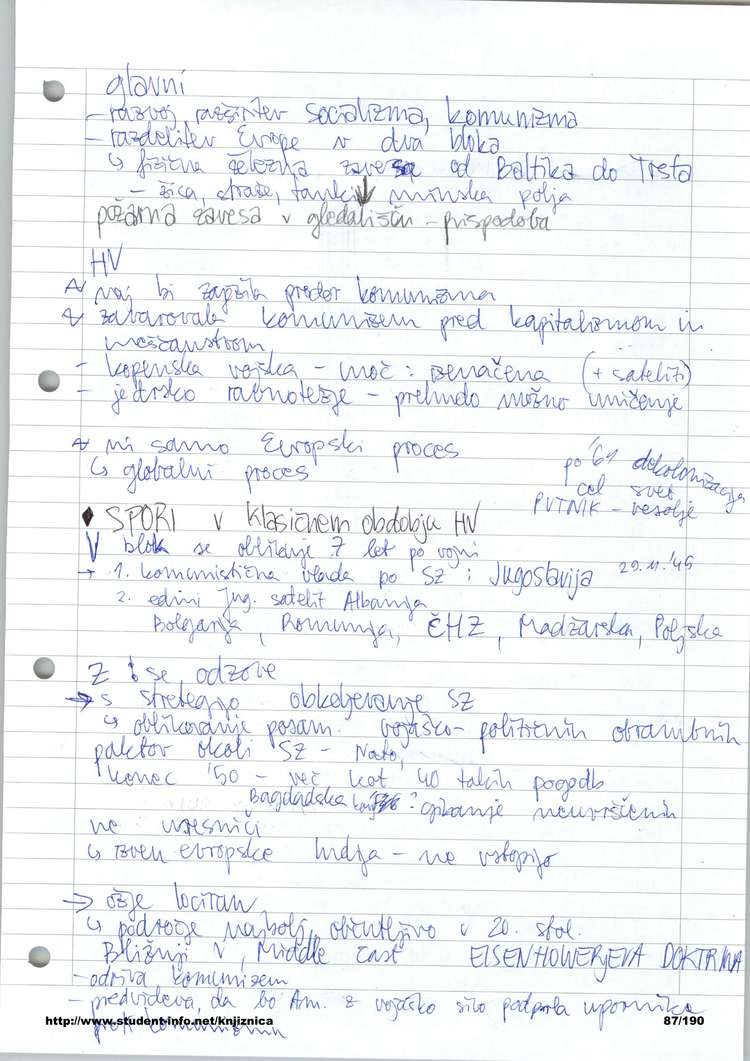 glavni
- razvoj, razširitev socializma, komunizma
- razdelitev Evrope v dva bloka
↳ fizična železna zavesa od Baltika do Trsta
- žica, straže, tanki, minska polja
požarna zavesa v gledališču - prispodoba
HV
naj bi zajezila prodor komunizma
zavarovala komunizem pred kapitalizmom in
meščanstvom
- kopenska vojska - moč: izenačena (+ sateliti)
- jedrsko ravnotežje - prehudo možno uničenje
ni samo Evropski proces
↳ globalni proces
po '61 dekolonizacija
cel svet
PUTNIK - vesolje
♦ SPORI v klasičnem obdobju HV
V blok se oblikuje 7 let po vojni
→ 1. komunistična vlada po SZ: Jugoslavija 29.11.'45
2. edini Jug. satelit Albanija
Bolgarija, Romunija, ČHZ, Madžarska, Poljska
Z se odzove
→ s strategijo obkoljevanje SZ
↳ oblikovanje posam. vojaško-političnih obrambnih
paktov okoli SZ - Nato,
konec '50 - več kot 40 takih pogodb
Bagdadska : neuvrščenih
ne uresniči
↳ izven evropske Indija - ne vstopijo
→ ožje
↳ področje najbolj občutljivo v 20. stol.
Bližnji V, Middle East EISENHOWERJEVA DOKTRINA
- odriva komunizem
- predvideva, da bo Am. z vojaško silo podprla upornike
proti komunizmu
http://www.student-info.net/knjiznica
87/190